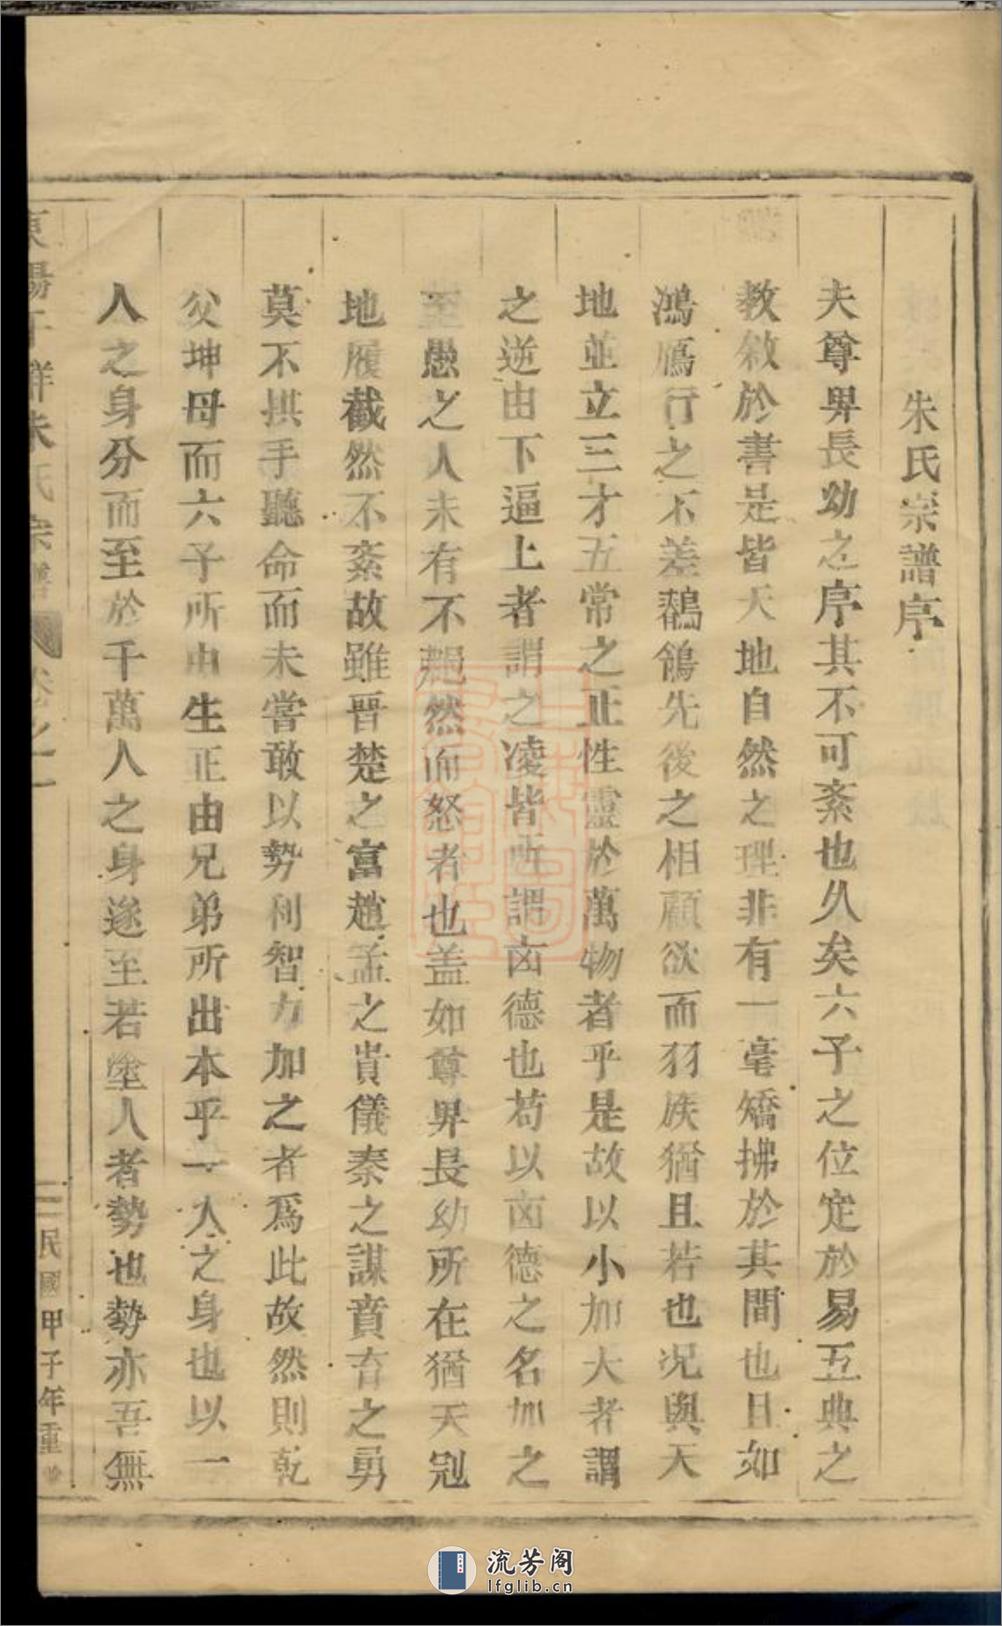 朱氏宗譜序
夫尊畀長幼之序其不可紊也久矣六子之位定於易五典之
教敘於書是皆天地自然之理非有一毫矯拂於其間也且如
鴻鴈行之不差鶺鴒先後之相顧欲而羽族猶且若也况與天
地並立三才五常之正性靈於萬物者乎是故以小加大者謂
之逆由下逼上者謂之凌皆所謂凶德也苟以凶德之名加之
至愚之人未有不艴然而怒者也盖如尊畀長幼所在猶天冠
地履截然不紊故雖晉楚之富趙孟之貴儀秦之謀賁育之勇
莫不拱手聽命而未嘗敢以勢利智力加之者為此故然則乾
父坤母而六子所由生正由兄弟所出本乎一人之身也以一
人之身分而至於千萬人之身遂至若塗人者勢也勢亦吾無
東陽 群朱氏宗譜 卷之一 民國甲子年重修
流芳阁
lfglib.cn